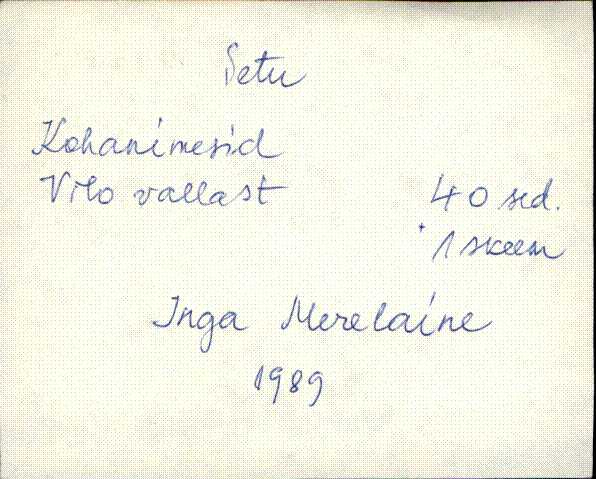 Setu
Kohanimesid
Vilo vallast 40 sed.
+ 1 skeem
Inga Merelaine
1989